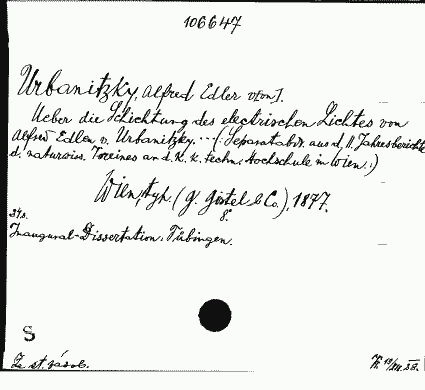 106647
Urbanitzky, Alfred Edler v[on].
Ueber die Schichtung des electrischen Lichtes von
Alfred Edlen v. Urbanitzky. ... (: Separatabdr. aus d. II. Jahresberichte
d. naturwiss. Vereines an d. k. k. techn. Hochschule in Wien. :)
Wien, typ. (G. Gistel & Co.), 1877.
8°
34 s.
Inaugural-Dissertation. Tübingen.
S
Ze st. zásob.